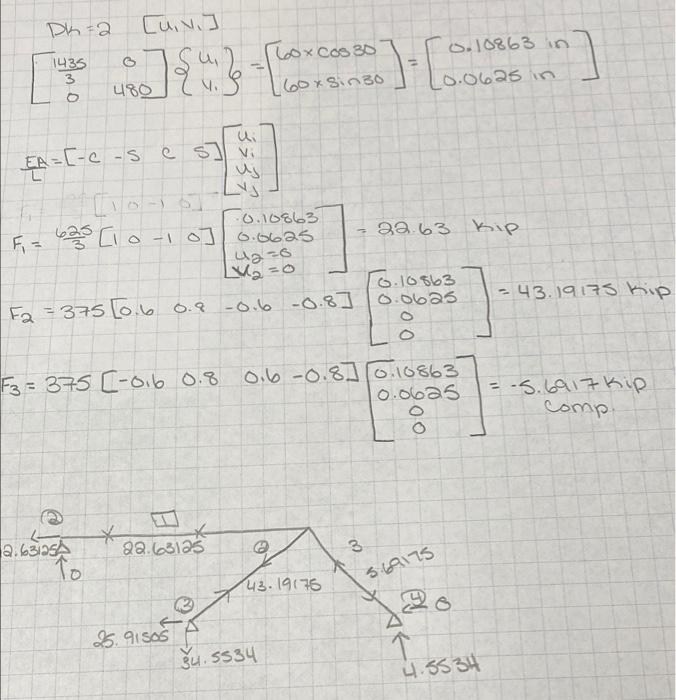 Dk=2 [u, v,]
[1435/3 0 0 480] {u, v,} = [60xcos30 60xsin30] = [0.10863 in 0.0625 in]
EA/L = [-c -s c s] [ui vi uj vj]
[1 0 -1 0]
F1 = 625/3 [1 0 -1 0] [0.10863 0.0625 u2=0 v2=0] = 22.63 kip
F2 = 375 [0.6 0.8 -0.6 -0.8] [0.10863 0.0625 0 0] = 43.19175 kip
F3 = 375 [-0.6 0.8 0.6 -0.8] [0.10863 0.0625 0 0] = -5.6917 kip
comp.
2 1
2.63125 22.63125 2 3
0 5.69175
43.19175
3 4 0
25.91505
34.5534 4.5534